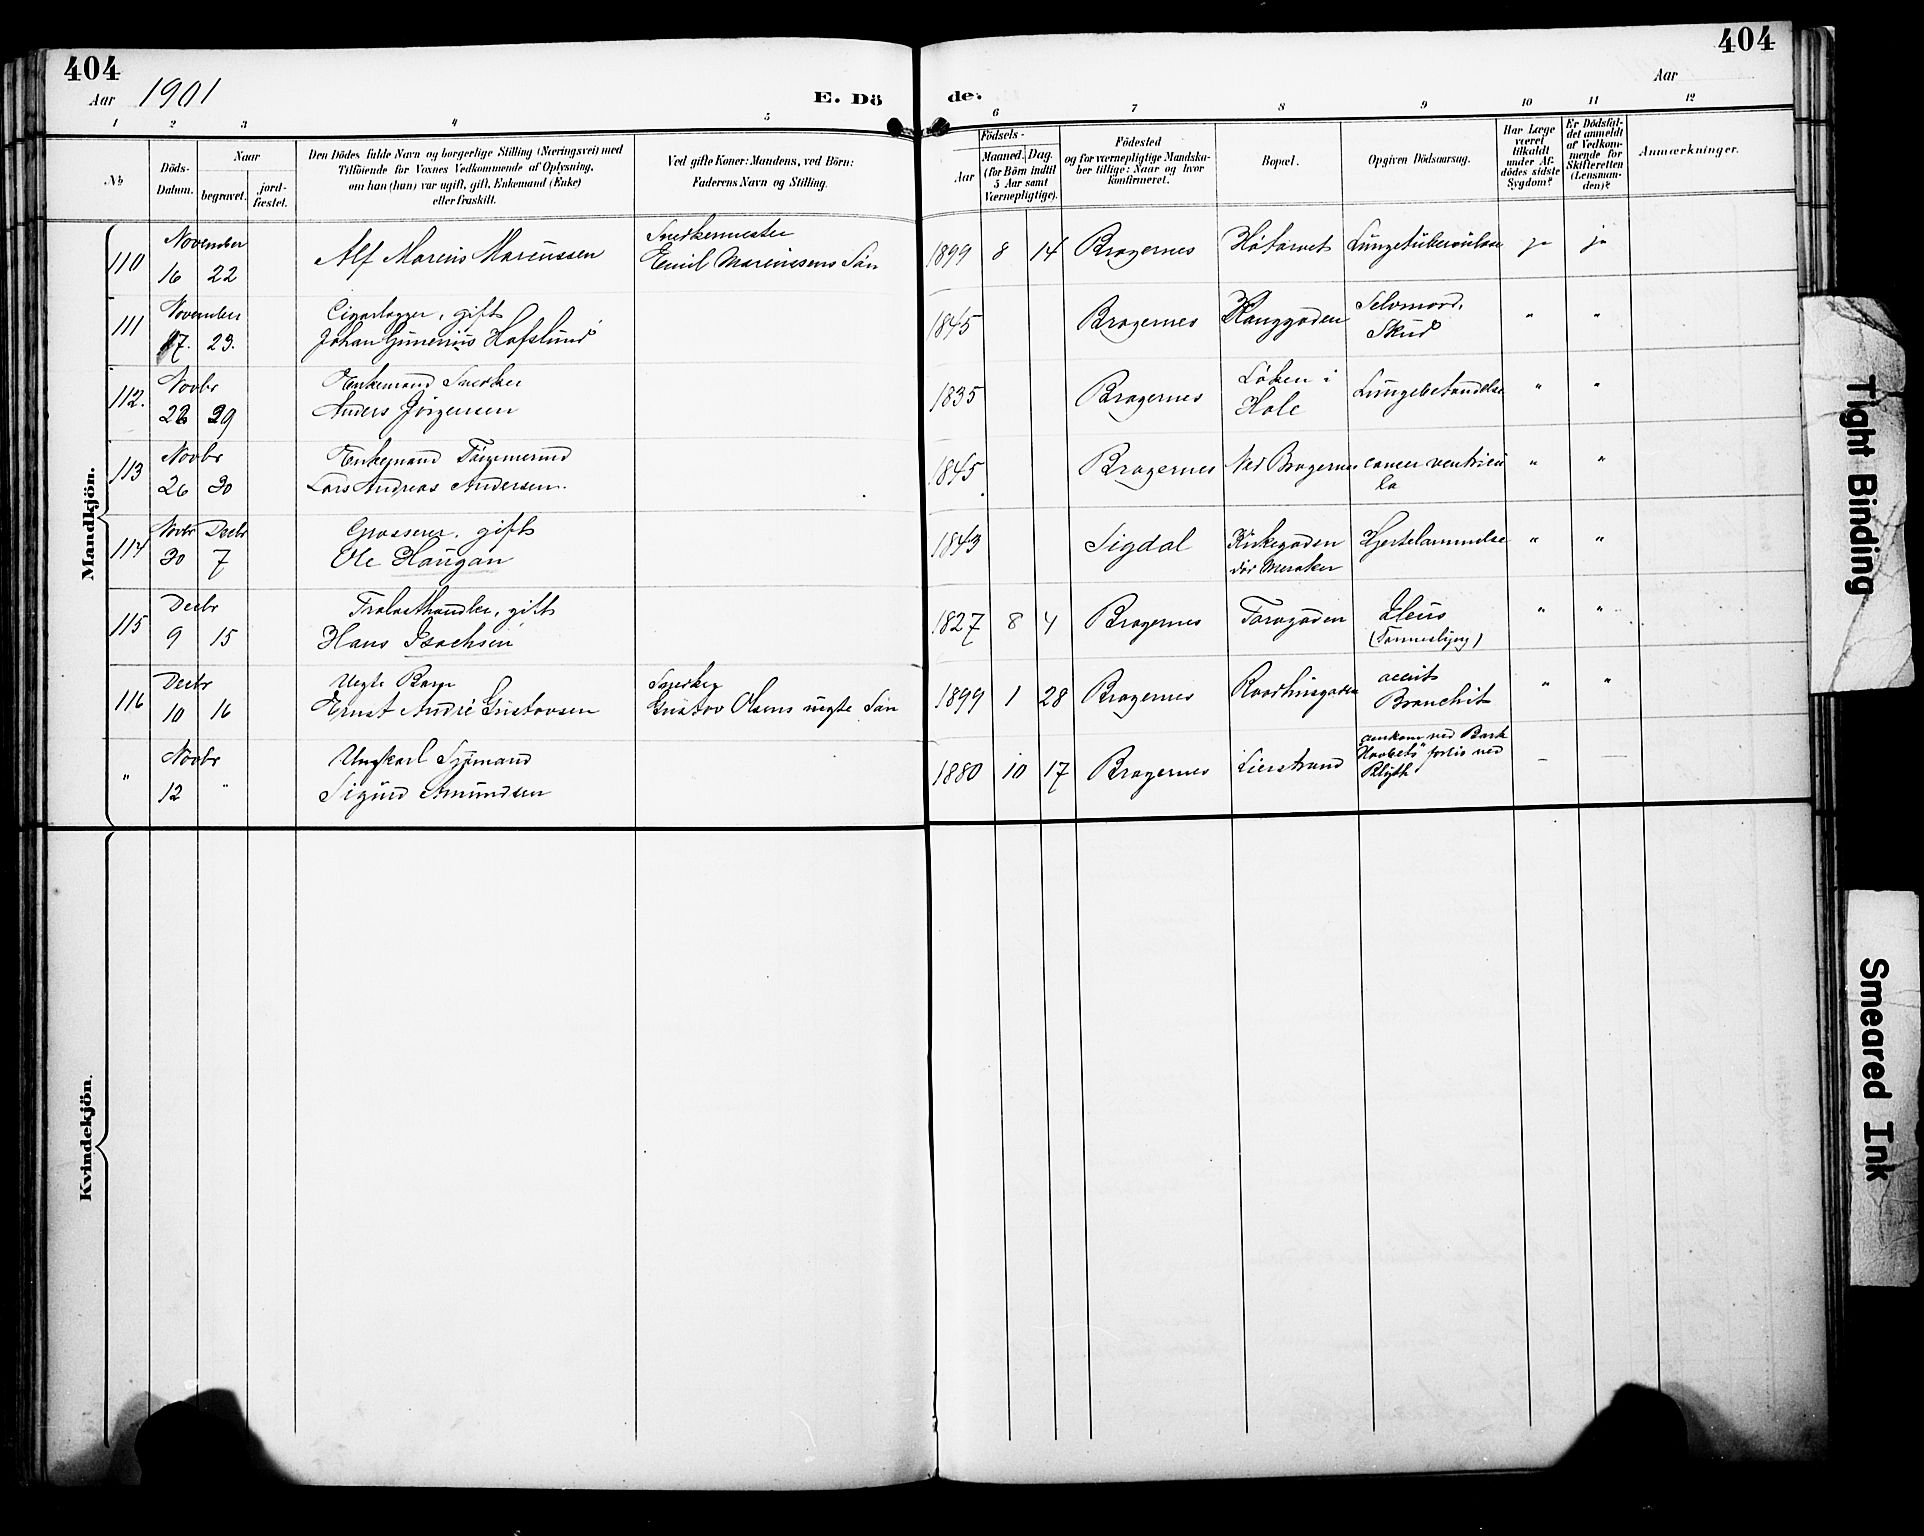 404
404
Aar 1901
E. Dö
de.
Aar
1 2 3 4 5 6 7 8 9 10 11 12
No
Döds-Datum.
Naar
begravet.
jord-fæstet.
Den Dödes fulde Navn og borgerlige Stilling (Næringsvei) med
Tilföiende for Voxnes Vedkommende af Oplysning,
om han (hun) var ugift, gift, Enkemand (Enke)
eller fraskilt.
Ved gifte Koner: Mandens, ved Börn:
Faderens Navn og Stilling.
Födsels-
Aar
Maaned. Dag.
(for Börn indtil
5 Aar samt
Værnepligtige).
Födested
og for værnepligtige Mandska-
ber tillige: Naar og hvor
konfirmeret.
Bopæl.
Opgiven Dödsaarsag.
Har Læge
været
tilkaldt
under Af-
dödes sidste
Sygdom?
Er Dödsfal-
det anmeldt
af Vedkom-
mende for
Skifteretten
(Lensman-
den)?
Anmærkninger.
Mandkjön.
110 November 16 22 Alf Marius Marcussen Snedkermester
Emil Marcussens Sön 1899 8 14 Bragernes Lungetuberculose ja ja
111 November 17. 23. gift
Johan Gunerius Hafslund 1845 Bragernes Selvmord,
Skud " "
112. Novbr 29 Enkemand Snedker
Anders Jörgensen 1835 Bragernes Löken i
Hole Lungebetændelse " "
113 Novbr 26 30 Enkemand
Lars Andreas Andersen. 1845 Bragernes Ved Bragernes cancer ventricu
la " "
114 Novbr 30 Decbr 7 Grosserer, gift
Ole Haugan 1843 Sigdal Kirkegaden
Hjertelammelse " "
115 Decbr 9 15 Trælasthandler, gift
Hans Isachsen 1827 8 4 Bragernes Ileus
" "
116 Decbr 10 16 Uegte Barn
Ernst André Gustavsen Snedker
Gustav Olsens uegte Sön 1899 1 28 Bragernes Raadhusgaden acut
Bronchit " "
" Novbr 12 " Ungkarl Sjömand
Sigurd Amundsen 1880 10 17 Bragernes Lierstrand omkom ved Bark
"Haabets" forlis ved
Blyth – –
Kvindekjön.
Tight Binding
Smeared Ink